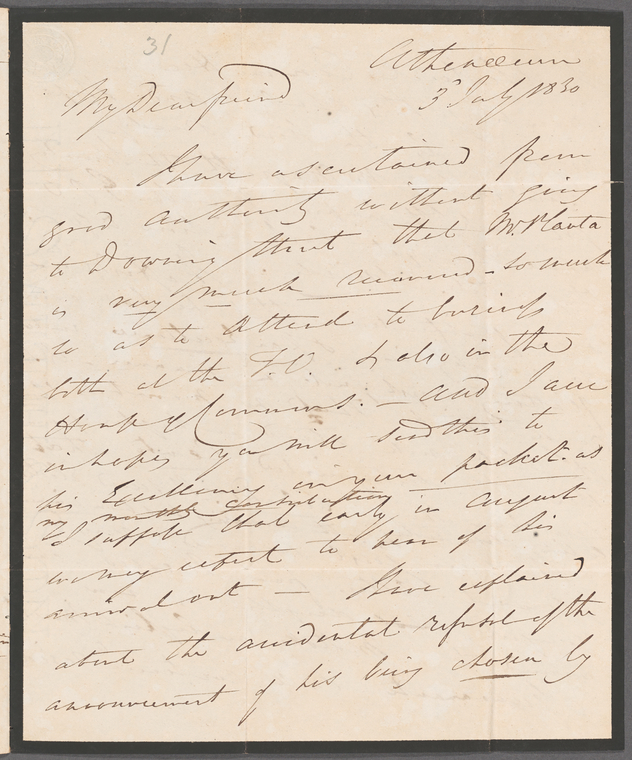 31
Athenaeum
3 July 1830
My Dear friend
I have ascertained from
good authority without going
to Downing Street that Mr. Planta
is very much recovered - so much
so as to attend to business
both at the F.O. & also in the
House of Commons. - and I am
in hopes you will send this to
his Excellency in your packet. as
my monthly contribution
I suppose that early in August
we may expect to hear of his
arrival out — I have explained
about the accidental refusal of the
announcement of his being chosen by